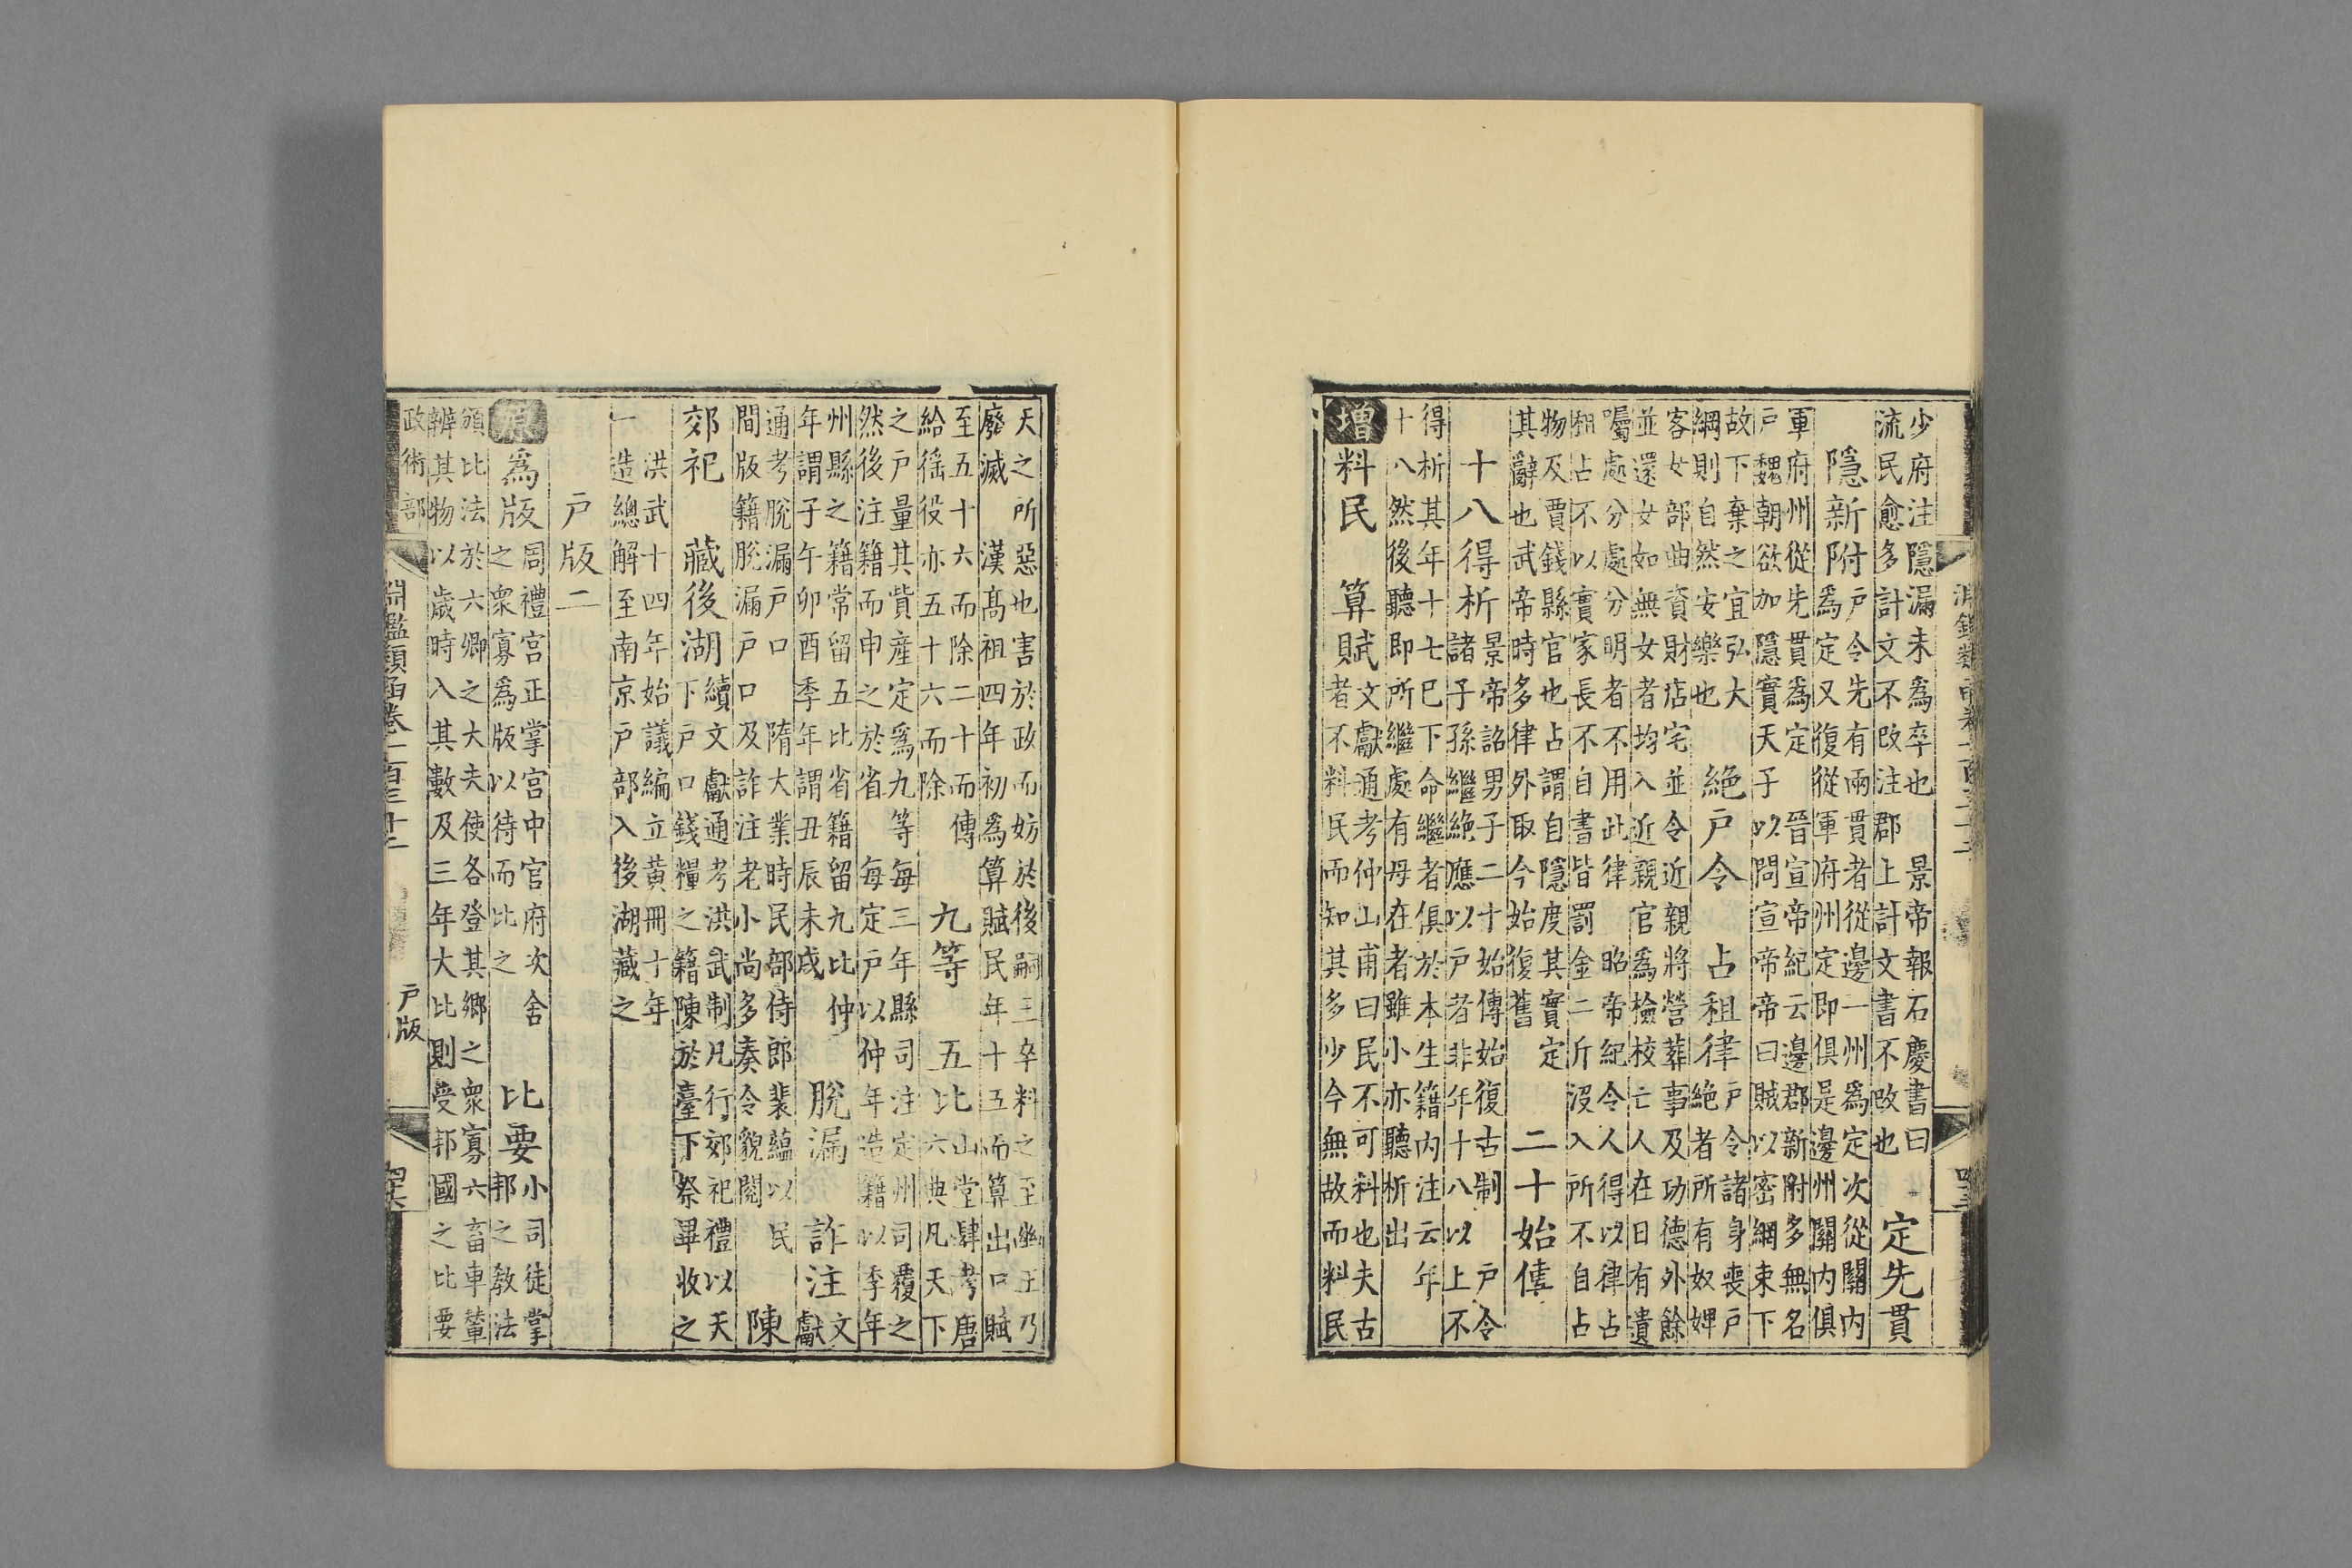 少府注隱漏未爲卒也　景帝報石慶書曰
流民愈多計文不改注郡上計文書不改也
定先貫
隱新附
戶令先有兩貫者從邊一州爲定次從關內
爲定又復從軍府州定即俱是邊州關內俱
軍府州從先貫爲定　晉宣帝紀云邊郡新附多無名
戶魏朝欲加隱實天子以問宣帝帝曰賊以密網束下
故下棄之宜弘大
綱則自然安樂也
絕戶令　占租律
戶令諸身喪戶
絕者所有奴婢
客女部曲資財店宅並令近親將營葬事及功德外餘
並還女如無女者均入近親官爲檢校亡人在日有遺
囑處分處分明者不用此律　昭帝紀令人得以律占
租占不以實家長不自書皆罰金二斤沒入所不自占
物及賈錢縣官也占謂自隱度其實定
其辭也武帝時多律外取今始復舊
二十始傅
十八得析
景帝詔男子二十始傅始復古制　戶令
諸子孫繼絕應以戶者非年十八以上不
得析其年十七已下命繼者俱於本生籍內注云年
十八然後聽即所繼處有母在者雖小亦聽析出
增料民　算賦
文獻通考仲山甫曰民不可料也夫古
者不料民而知其多少今無故而料民
天之所惡也害於政而妨於後嗣三卒料之至幽王乃
廢滅　漢高祖四年初爲算賦民年十五而算出口賦
至五十六而除二十而傅
給徭役亦五十六而除
九等　五比
山堂肆考唐
六典凡天下
之戶量其貲產定爲九等每三年縣司注定州司覆之
然後注籍而申之於省　每定戶以仲年造籍以季年
州縣之籍常留五比省籍留九比仲
年謂子午卯酉季年謂丑辰未戌
脫漏　詐注
文
獻
通考脫漏戶口　隋大業時民部侍郎裴蘊以民
間版籍脫漏戶口及詐注老小尚多奏令貌閱
陳
郊祀　藏後湖
續文獻通考洪武制凡行郊祀禮以天
下戶口錢糧之籍陳於臺下祭畢收之
洪武十四年始議編立黃冊十年
一造總解至南京戶部入後湖藏之
戶版二
原爲版
周禮宮正掌宮中官府次舍
之衆寡爲版以待而比之
比要
小司徒掌
邦之教法
頒比法於六卿之大夫使各登其鄉之衆寡六畜車輦
辨其物以歲時入其數及三年大比則受邦國之比要
政術部
淵鑑類函卷一百三十二
戶版